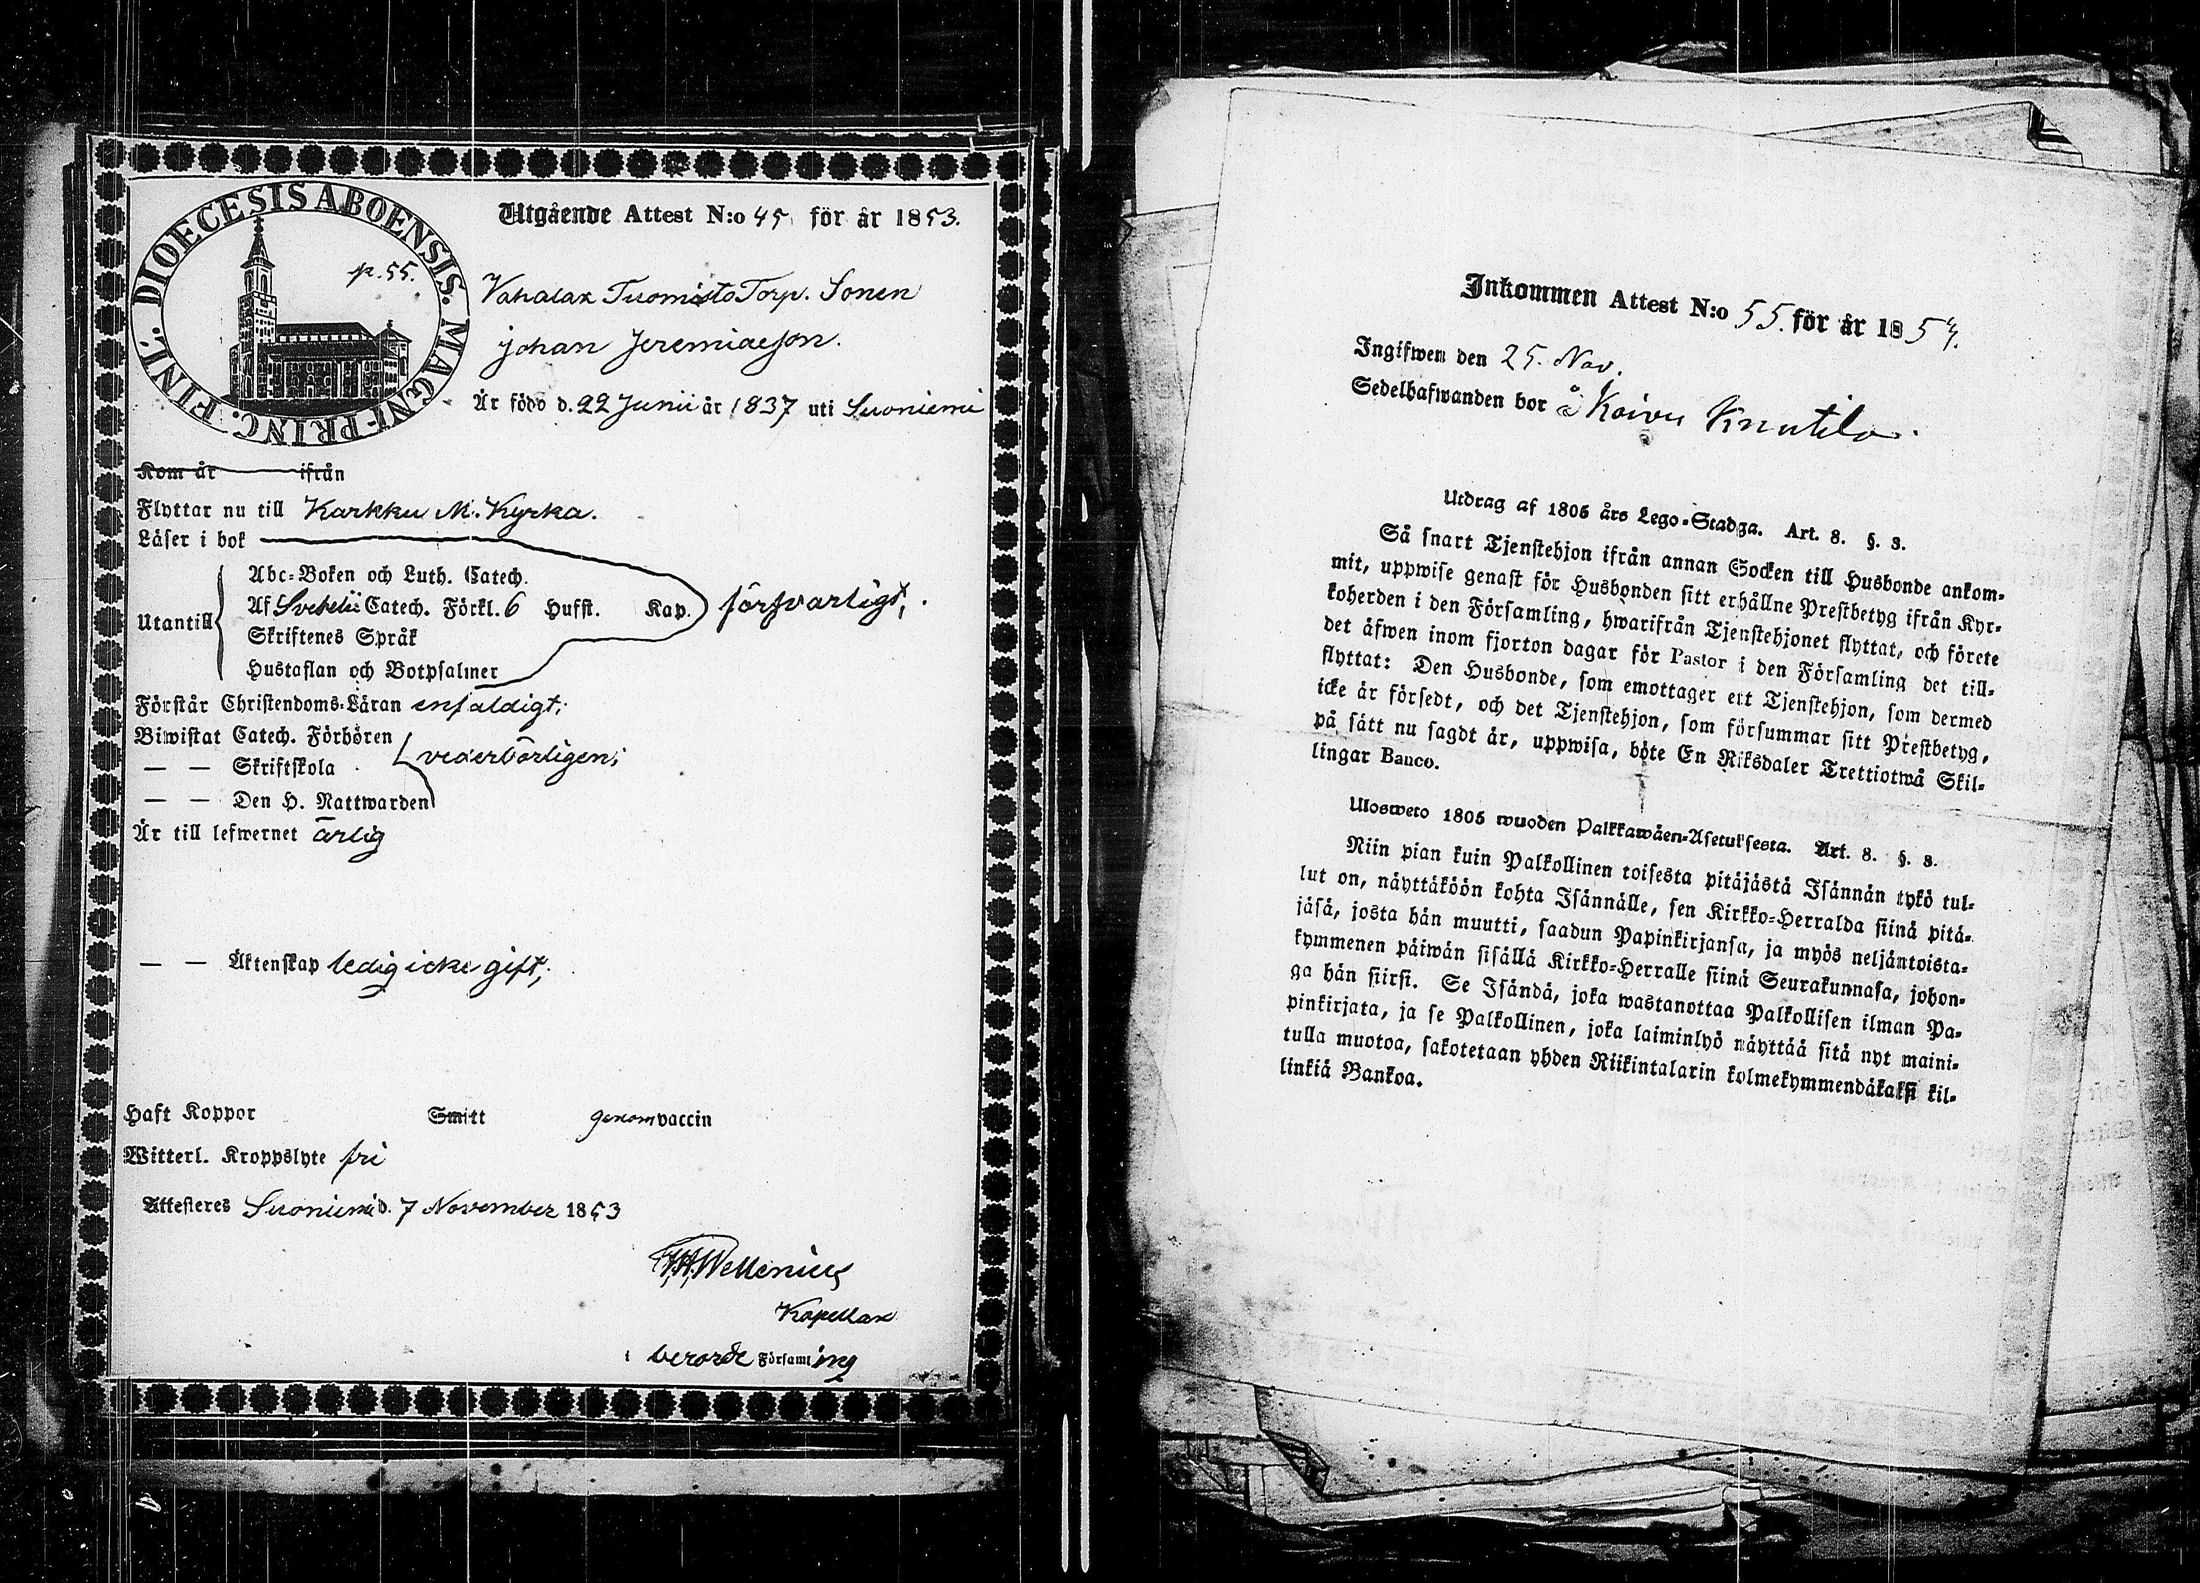 DIOECESIS ABOENSIS. MAGNI PRINC. FINL.
p. 55.
Utgående Attest N:o 45 för år 1853.
Vahalax Tuomisto Torp. Sonen
Johan Jeremiaeson.
Är född d. 22 Junii år 1837 uti Suoniemi
Kom år ifrån
Flyttar nu till Karkku M. Kyrka.
Läser i bok
Abc-Boken och Luth. Catech.
Utantill Af Svebelii Catech. Förkl. 6 Hufst. Kap. försvarligt,
Skriftenes Språk
Hustaflan och Botpsalmer
Förstår Christendoms-Läran enfaldigt;
Biwistat Catech. Förhören
— — Skriftskola vederbörligen;
— — Den H. Nattwarden
Är till lefwernet ärlig
— — Äktenskap ledig icke gift;
Haft Koppor Smitt genom vaccin
Witterl. Kroppslyte fri
Attesteres Suoniemi d. 7 November 1853
Wellenius
Kapellan
i berorde Församling
Inkommen Attest N:o 55. för år 1854.
Ingifwen den 25. Nov.
Sedelhafwanden bor å Koivu Knutila.
Utdrag af 1805 års Lego-Stadga. Art. 8. §. 3.
Så snart Tjenstehjon ifrån annan Socken till Husbonde ankom-
mit, uppwise genast för Husbonden sitt erhållne Prestbetyg ifrån Kyr-
koherden i den Församling, hwarifrån Tjenstehjonet flyttat, och förete
det äfwen inom fjorton dagar för Pastor i den Församling det till-
flyttat: Den Husbonde, som emottager ett Tjenstehjon, som dermed
icke är försedt, och det Tjenstehjon, som försummar sitt Prestbetyg,
på sätt nu sagdt är, uppwisa, böte En Riksdaler Trettiotwå Skil-
lingar Banco.
Ulosweto 1805 wuoden Palkkawäen-Asetuksesta. Art. 8. §. 3.
Niin pian kuin Palkollinen toisesta pitäjästä Isännän tykö tul-
lut on, näyttäköön kohta Isännälle, sen Kirkko-Herralda siinä pitä-
jäsä, josta hän muutti, saadun Papinkirjansa, ja myös neljäntoista-
kymmenen päiwän sisällä Kirkko-Herralle siinä Seurakunnasa, johon-
ga hän siirsi. Se Isändä, joka wastanottaa Palkollisen ilman Pa-
pinkirjata, ja se Palkollinen, joka laiminlyö näyttää sitä nyt maini-
tulla muotoa, sakotetaan yhden Riikintalarin kolmekymmendäkaksi kil-
linkiä Bankoa.